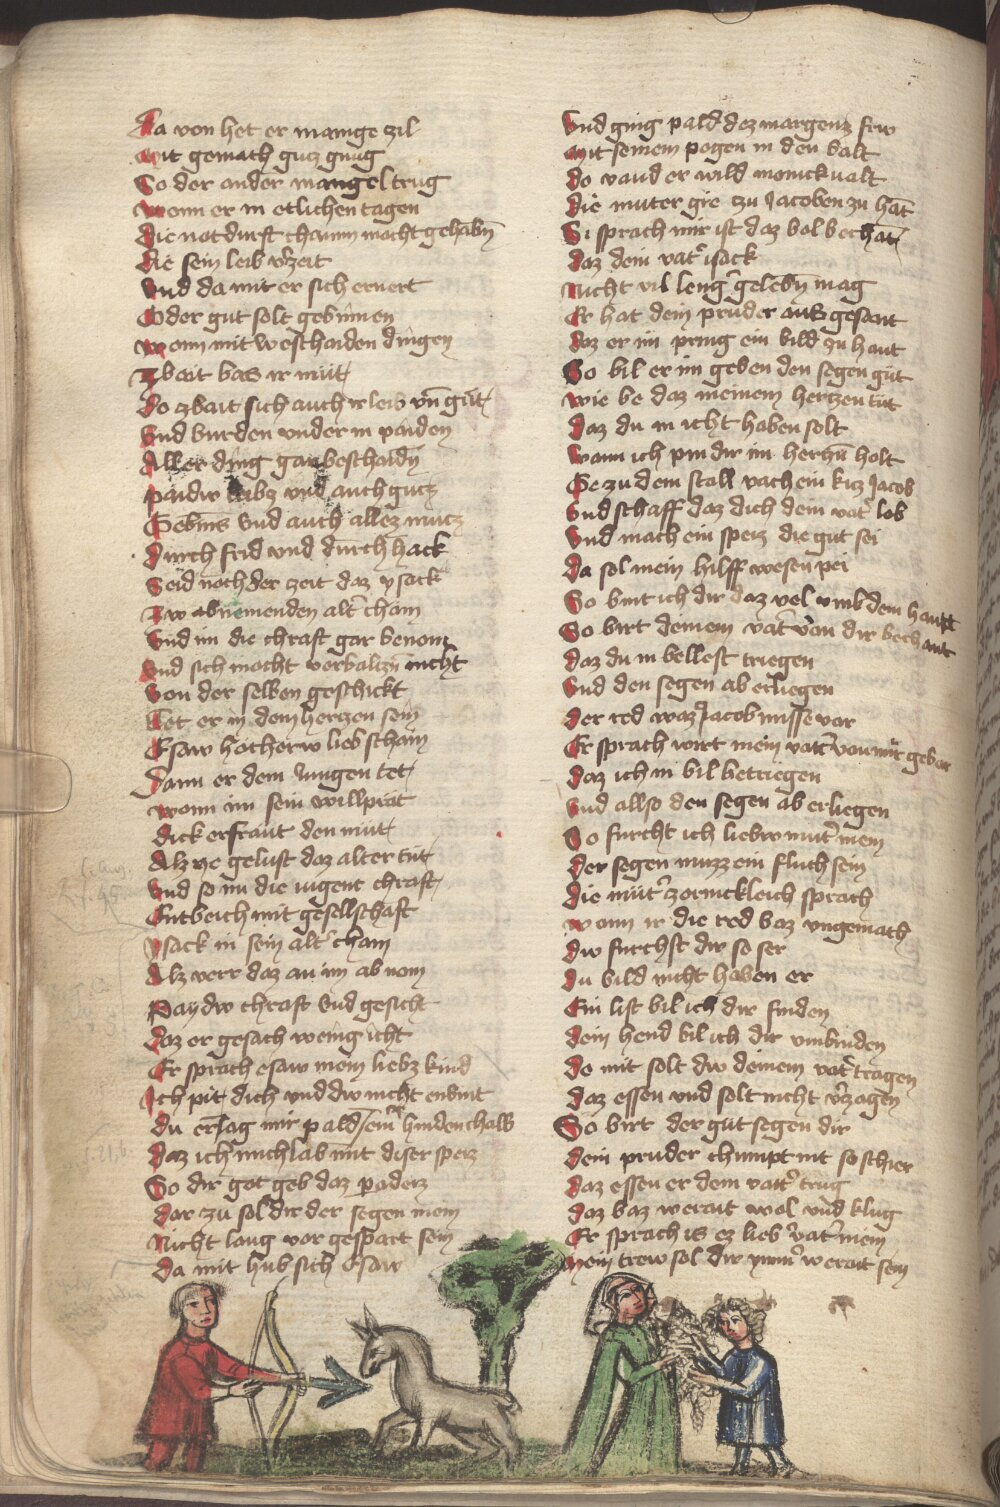 Da von het er mainge zil
Mit gemach gutz gnug
So der ander mangel trug
Wenn er in etlichen tagen
Die notdurft chaum mocht gehabn
Die sein leib verzert
Vnd da mit er sich ernert
Oder gut solt gebinnen
Wenn mit weschaiden dingen
Zbait bas ir mut
Do zbait sich auch ir leib vn gut
Vnd burden vnder in paiden
Aller ding gar beschaidn
Paidw leibz vnd auch gutz
Gebins vnd auch allez nutz
Durch frid vnd durch hack
Seid nach der zeit daz ysack
Zw abnemenden alter cham
Vnd im die chraft gar benom
Vnd sich mocht verbalizn nicht
Von der selben geschickt
Tet er in dem hertzen sein
Esaw hocher lieb schain
Dann er dem Jungen tet
Wann im sein willprat
Dick erfraut den mut
Alz ye gelust daz alter tut
Vnd so im die iugent chraft
Entbeich mit gesellschaft
Ysack in sein alter cham
Alz verr daz an im ab nom
Paydw chraft vnd gesicht
Daz er gesach wenig icht
Er sprach esaw mein liebz kind
Ich pit dich vnd dw nicht enbint
Du erlag mir pald ein hinden chalb
Daz ich mich lab mit diser speiz
So dir got geb daz paderz
Dar zu sol dir der segen mein
Nicht lang vor gespart sein
Da mit hub sich Esaw
Vnd ging pald dez margenz frw
Mit seinem pogen in den balt
Do vand er wild manickualt
Die muter gie zu Jacoben zu hat
Si sprach mir ist daz bol bechat
Daz dem vater ysack
Nicht vil leng gelebn mag
Er hat dein pruder auß gesant
Daz er im pring ein bild zu hant
So bil er im geben den segen gut
Wie be daz meinem hertzen tut
Daz du in icht haben solt
Wann ich pin dir im hertzn holt
Ge zu dem stall vach ein kiz Jacob
Vnd schaff daz dich dein vater lob
Vnd mach ein speiz die gut sei
Da sol mein hilff wesen pei
So bint ich dir daz vel vmb dem haupt
So birt deinem vater von dir bechant
Daz du in bellest triegen
Vnd den segen ab erliegen
Der red waz Jacob misse var
Er sprach wirt mein vater von mir gebar
Daz ich in bil betriegen
Vnd allso den segen ab erliegen
So furcht ich liebw muter mein
Der segen muzz ein fluch sein
Die muter zornickleich sprach
Wann ir die red baz vngemach
Dw furchst dir so ser
Du bild nicht haben er
Ein list bil ich dir finden
Dein hend bil ich dir vmbinden
Do mit solt dw deinem vater tragen
Daz essen vnd solt nicht verzagen
So birt der gut segen dir
Dein pruder chumpt nit so schier
Daz essen er dem vater trug
Daz baz werait wol vnd klug
Er sprach is ez lieb vater mein
Mein trew sol dir ymmer werait sein